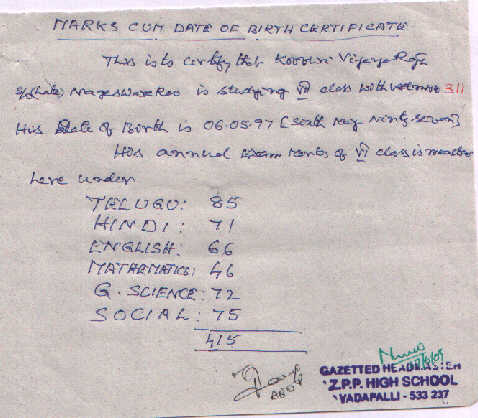 MARKS CUM DATE OF BIRTH CERTIFICATE
This is to certify that Kovvuri Vijaya Raju
S/o (Late) Nageswara Rao is studying VII class with 311
His Date of Birth is 06.05.97 [Sixth May Ninty seven]
His annual exam Marks of VI class is
here under
TELUGU: 85
HINDI: 71
ENGLISH: 66
MATHAMATICS: 46
G. SCIENCE: 72
SOCIAL: 75
415
GAZETTED HEADMASTER
Z.P.P. HIGH SCHOOL
YADAPALLI - 533 237